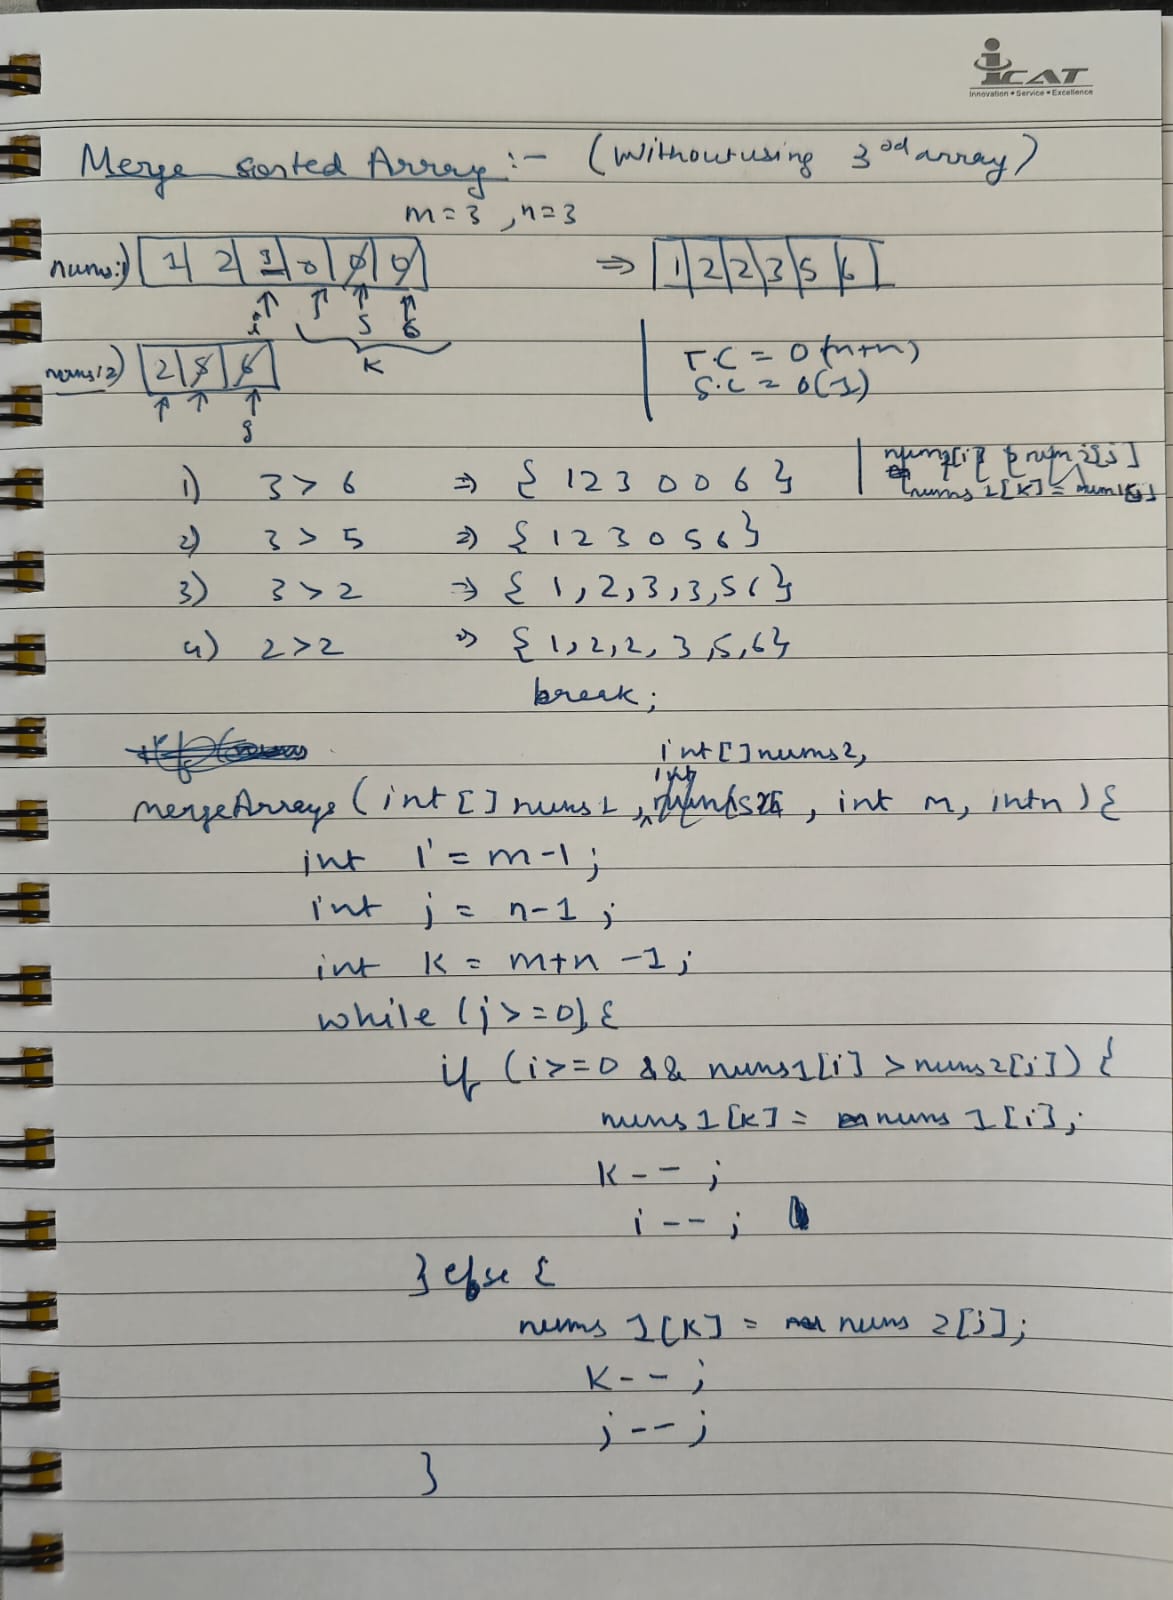 iCAT
Innovation • Service • Excellence
Merge Sorted Array :- (Without using 3rd array)
m = 3 , n = 3
nums1) [1 | 2 | 3 | 0 | 0 | 0] ⇒ [1 | 2 | 2 | 3 | 5 | 6]
i 5 6
K
nums2) [2 | 5 | 6]
j
T.C = O(n+n)
S.C = O(1)
nums1[K] =
1) 3 > 6 ⇒ { 1 2 3 0 0 6 }
2) 3 > 5 ⇒ { 1 2 3 0 5 6 }
3) 3 > 2 ⇒ { 1, 2, 3, 3, 5 6 }
4) 2 > 2 ⇒ { 1, 2, 2, 3, 5, 6 }
break;
int[] nums2,
mergeArrays (int[] nums1, , int m, int n) {
int i = m-1;
int j = n-1;
int K = m+n-1;
while (j >= 0) {
if (i >= 0 && nums1[i] > nums2[j]) {
nums1[K] = nums1[i];
K--;
i--;
} else {
nums1[K] = nums2[j];
K--;
j--;
}